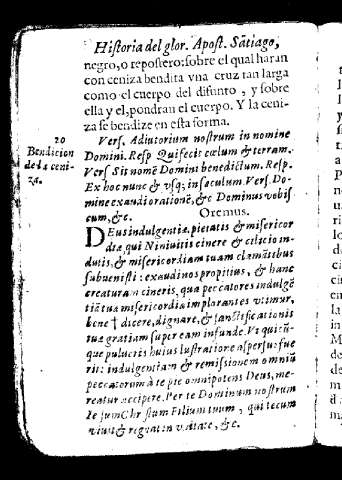 Historia del glor. Apost. Sãtiago,
negro, o repostero: sobre el qual haran
con ceniza bendita vna cruz tan larga
como el cuerpo del difunto, y sobre
ella y el, pondran el cuerpo. Y la ceni-
za se bendize en esta forma.
20
Bendicion
de la ceni-
za.
Vers. Adiutorium nostrum in nomine
Domini. Resp Quifecit cœlum & terram.
Vers Sit nomẽ Domini benedictum. Resp.
Ex hoc nunc & vsq; in sæculum. Vers. Do-
mine exaudi orationẽ, &c Dominus vobis
cum, &c.
Oremus.
DEus indulgentiæ, pietatis & misericor
diæ, qui Niniuitis cinere & cilicio in-
dutis, & misericordiam tuam clamãtibus
subuenisti: exaudi nos propitius, & hanc
creaturam cineris, qua peccatores indulgẽ
tiã tua misericordia implorantes vtimur,
bene † dicere, dignare, & sanctificationis
tuæ gratiam super eam infunde. Vt quicũ-
que pulueris huius lustratione aspersus fue
rit: indulgentiam & remissionem omniũ
peccatorum à te pie omnipotens Deus, me-
reatur accipere. Per te Dominum nostrum
Iesum Christum Filium tuum, qui tecum
viuit & regnat in vnitate, &c.